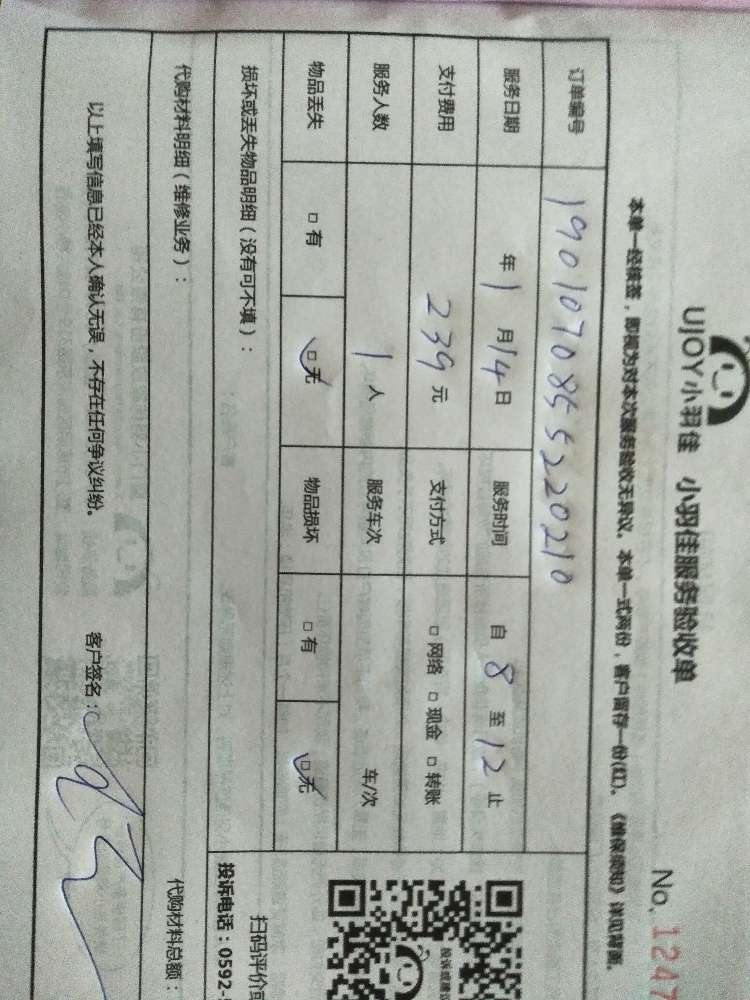 UJOY小羽佳 小羽佳服务验收单
No. 1247
本单一经核签，即视为对本次服务验收无异议。本单一式两份，客户留存一份(红)。《维保须知》详见背面。
订单编号 190107085522010
服务日期 年1月14日 服务时间 自8至12止
支付费用 239元 支付方式 □网络 □现金 □转账
服务人数 1人 服务车次 车/次
物品丢失 □有 □无 物品损坏 □有 □无
损坏或丢失物品明细（没有可不填）：
代购材料明细（维修业务）：
代购材料总额：
以上填写信息已经本人确认无误，不存在任何争议纠纷。 客户签名：
扫码评价或
投诉电话：0592-